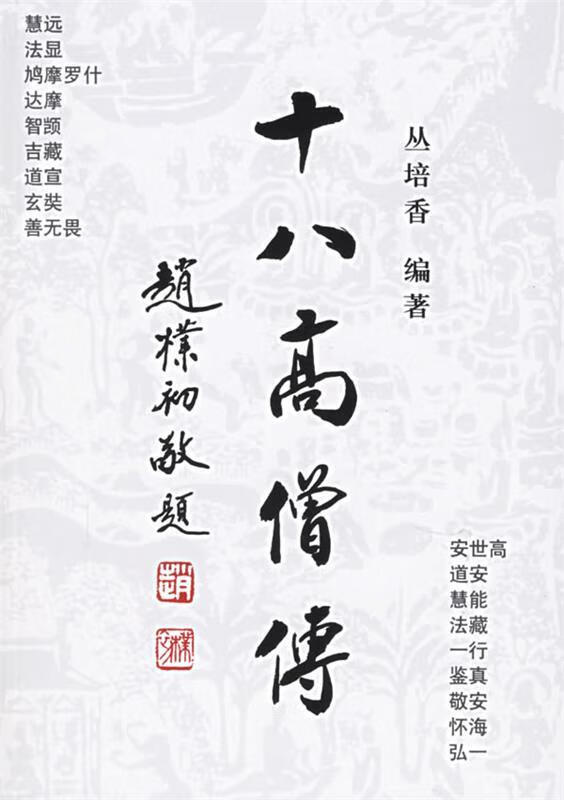 慧远
法显
鸠摩罗什
达摩
智顗
吉藏
道宣
玄奘
善无畏
十八高僧傳
丛培香 编著
趙樸初敬題
趙
樸初
安世高
道安
慧能
法藏
一行
鉴真
敬安
怀海
弘一